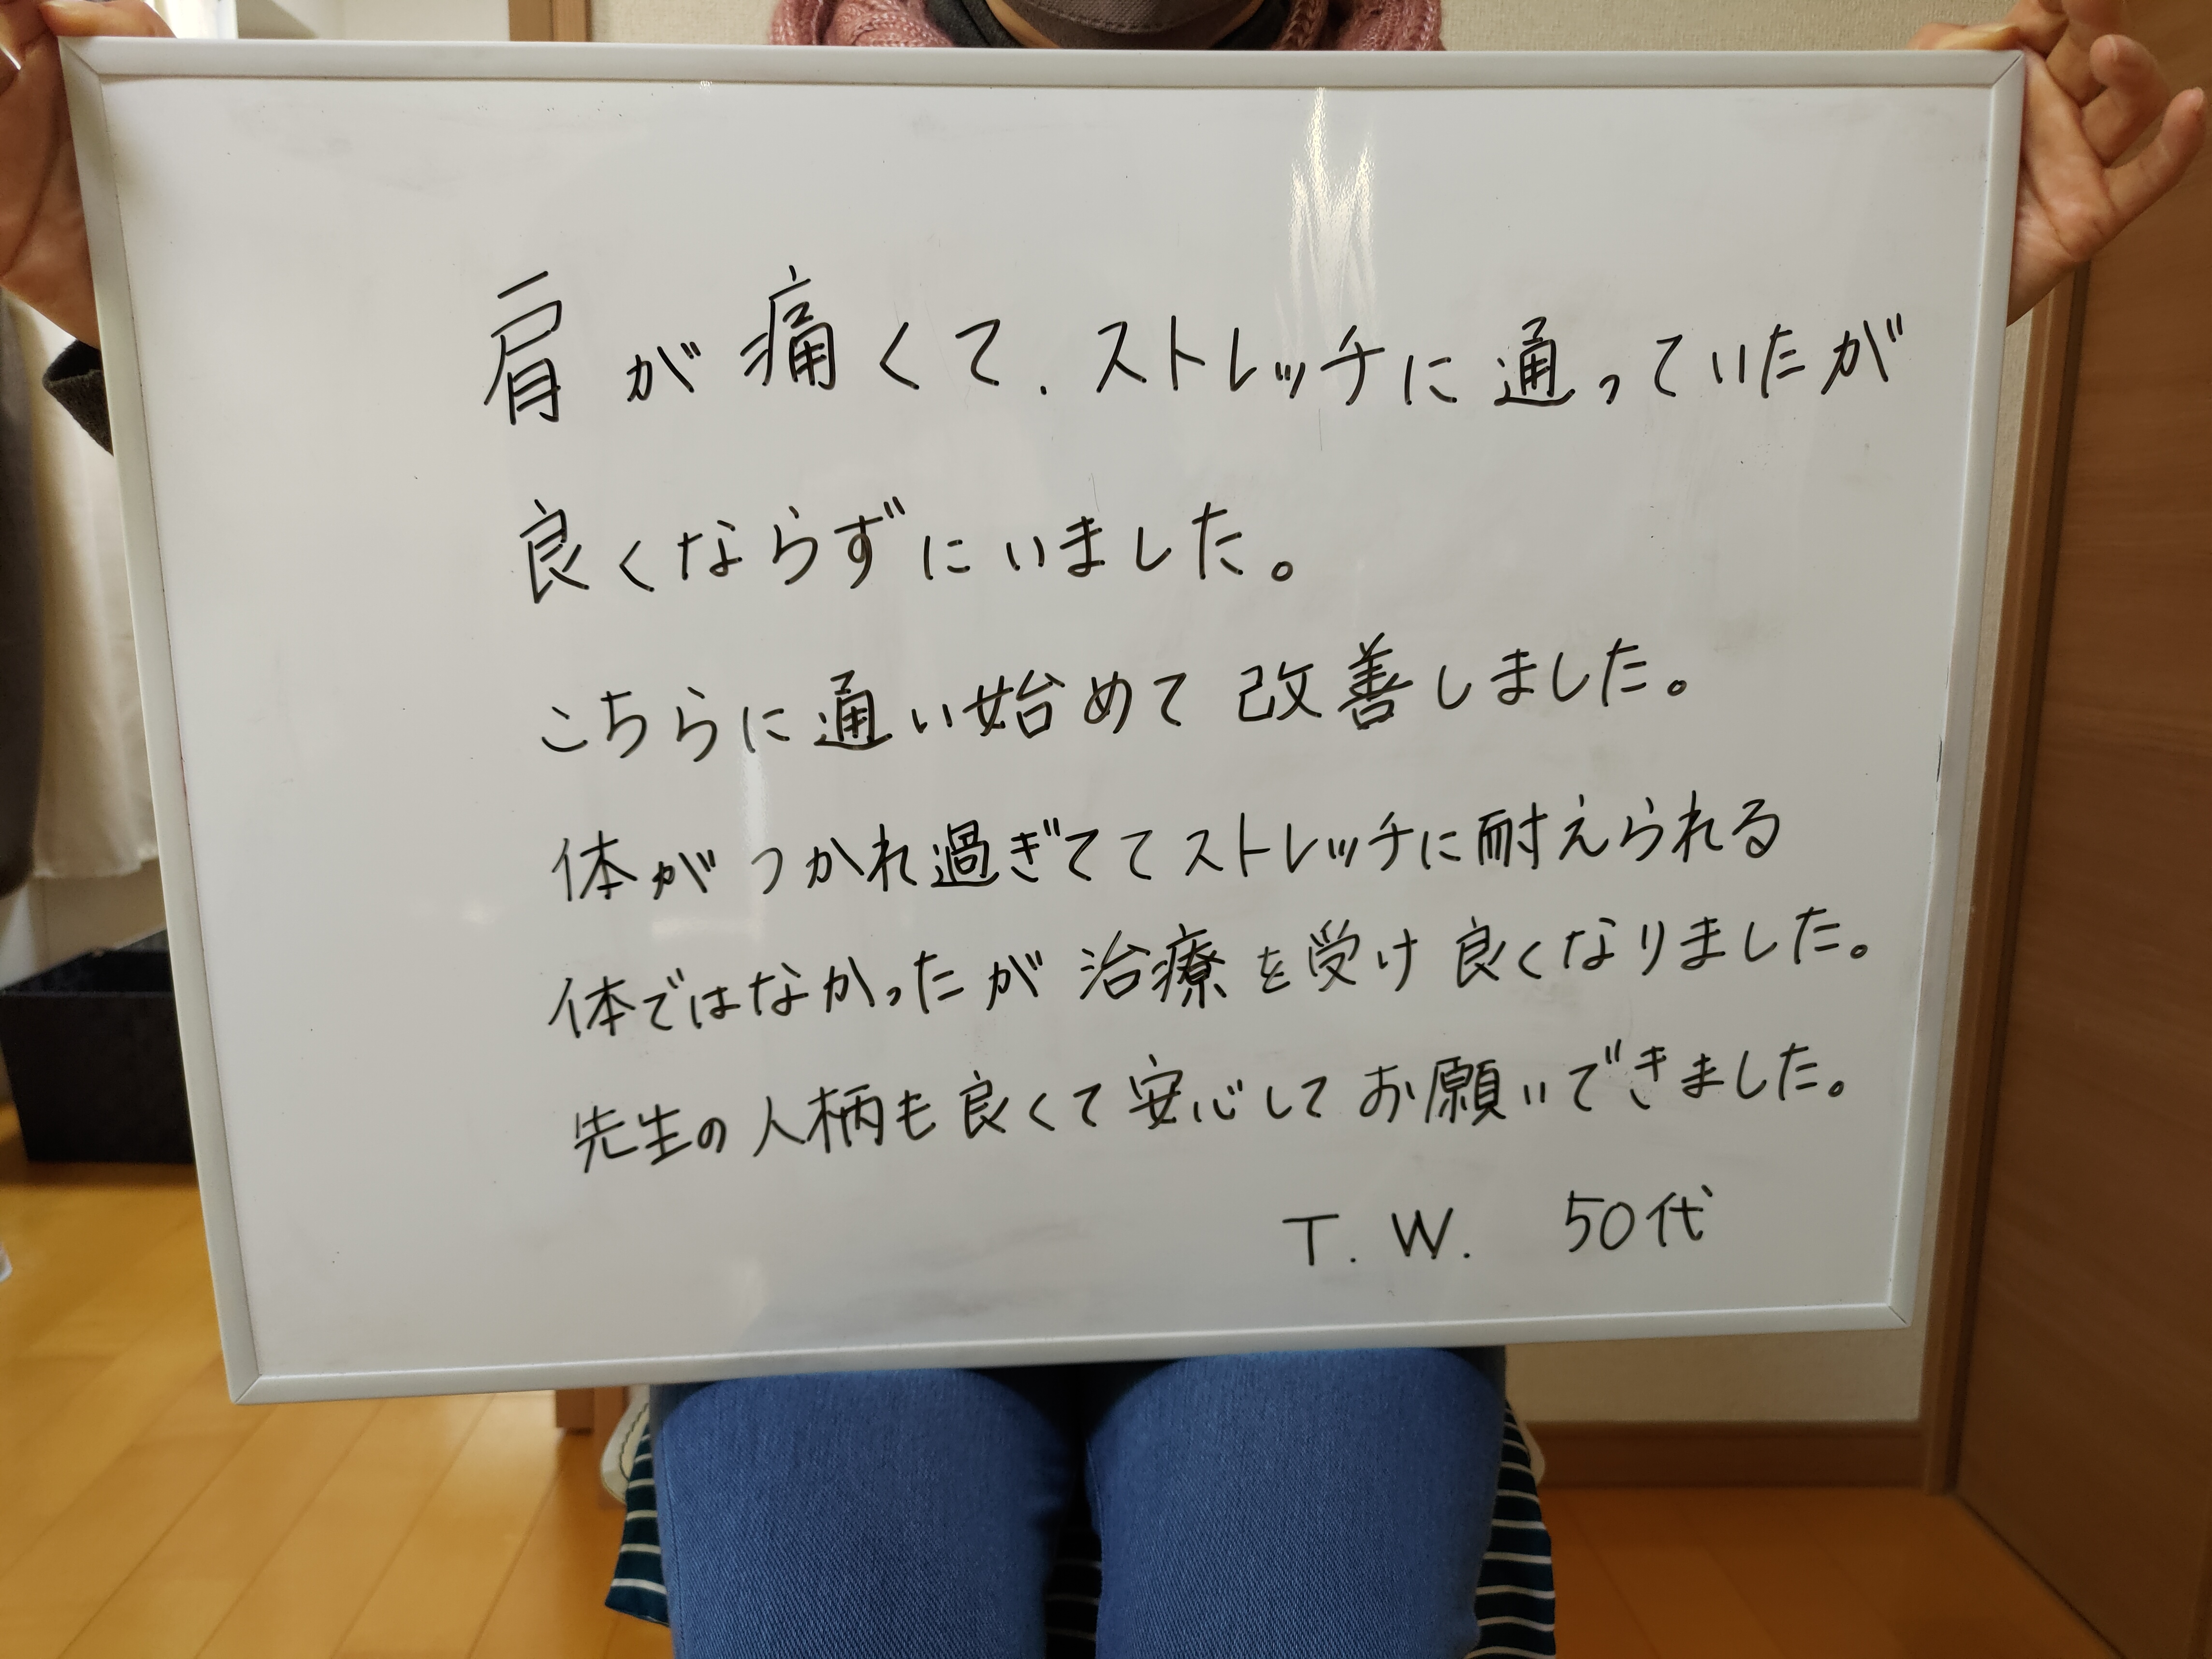 肩が痛くて、ストレッチに通っていたが
良くならずにいました。
こちらに通い始めて改善しました。
体がつかれ過ぎててストレッチに耐えられる
体ではなかったが治療を受け良くなりました。
先生の人柄も良くて安心してお願いできました。
T. W. 50代